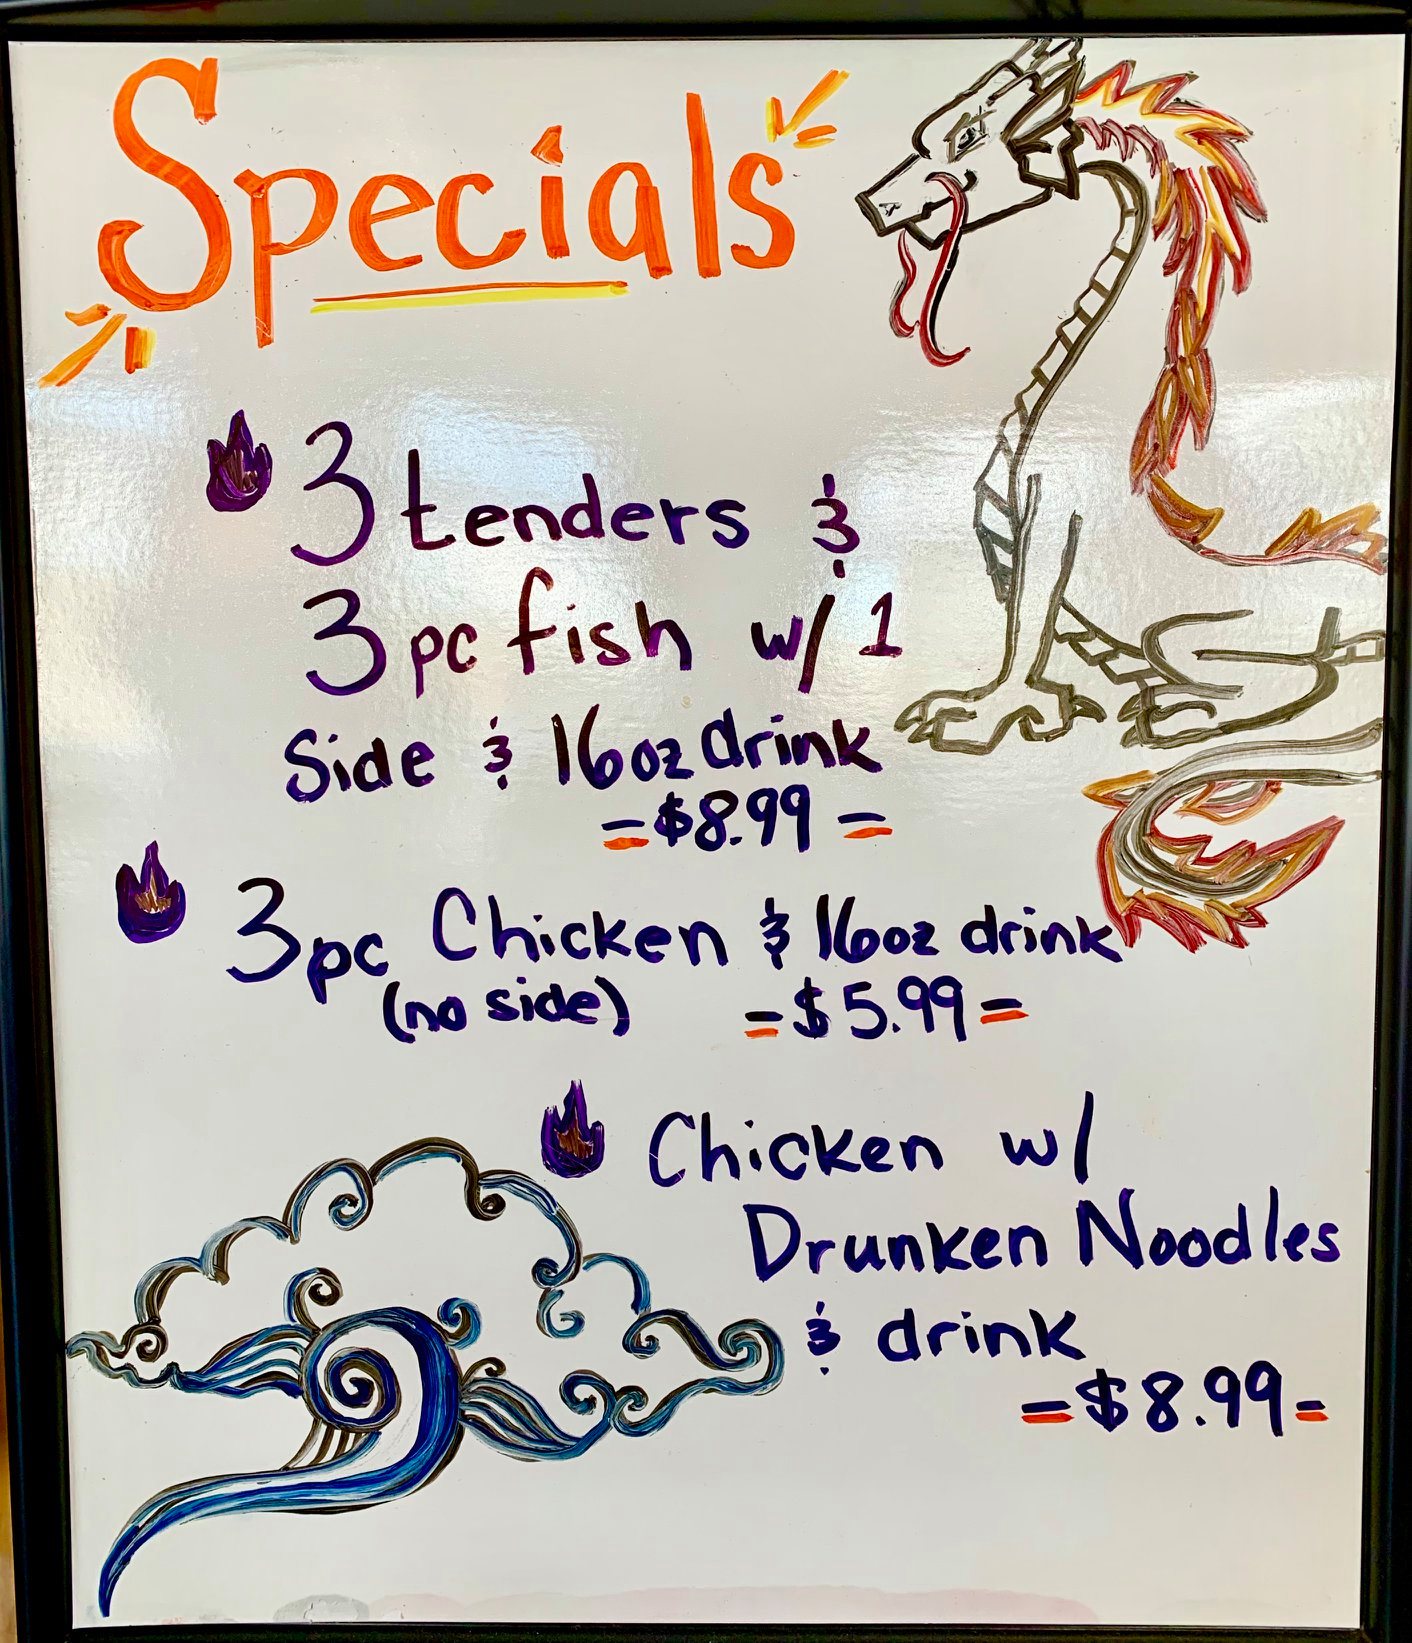 Specials
3 tenders &
3 pc fish w/ 1
Side & 16oz drink
=$8.99=
3pc Chicken & 16oz drink
(no side) =$5.99=
Chicken w/
Drunken Noodles
& drink
=$8.99=